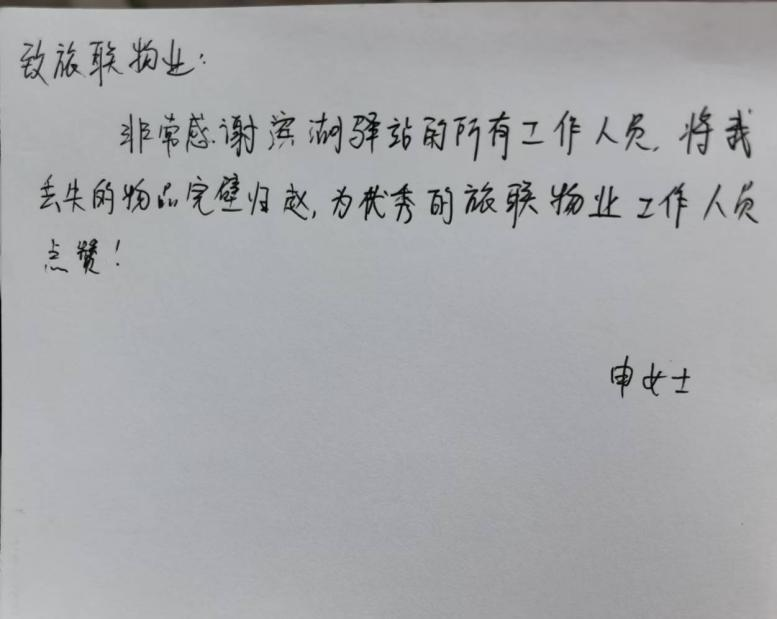 致旅联物业：
非常感谢滨湖驿站的所有工作人员，将我
丢失的物品完璧归赵，为优秀的旅联物业工作人员
点赞！
申女士